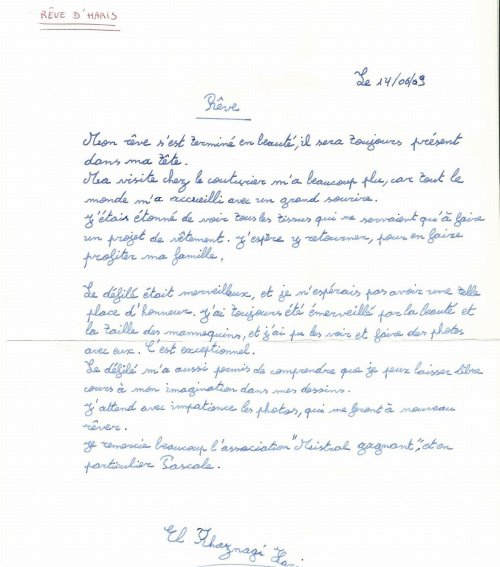 RÊVE D'HARIS
Le 14/06/09
Rêve
Mon rêve s'est terminé en beauté, il sera toujours présent
dans ma tête.
Ma visite chez le couturier m'a beaucoup plu, car tout le
monde m'a accueilli avec un grand sourire.
J'étais étonné de voir tous les tissus qui ne servaient qu'à faire
un projet de vêtement. J'espère y retourner, pour en faire
profiter ma famille.
Le défilé était merveilleux, et je n'espérais pas avoir une telle
place d'honneur. J'ai toujours été émerveillé par la beauté et
la taille des mannequins, et j'ai pu les voir et faire des photos
avec eux. C'est exceptionnel.
Le défilé m'a aussi permis de comprendre que je peux laisser libre
cours à mon imagination dans mes dessins.
J'attend avec impatience les photos, qui me feront à nouveau
rêver.
Je remercie beaucoup l'association "Mistral gagnant", et en
particulier Pascale.
El Khaznagi